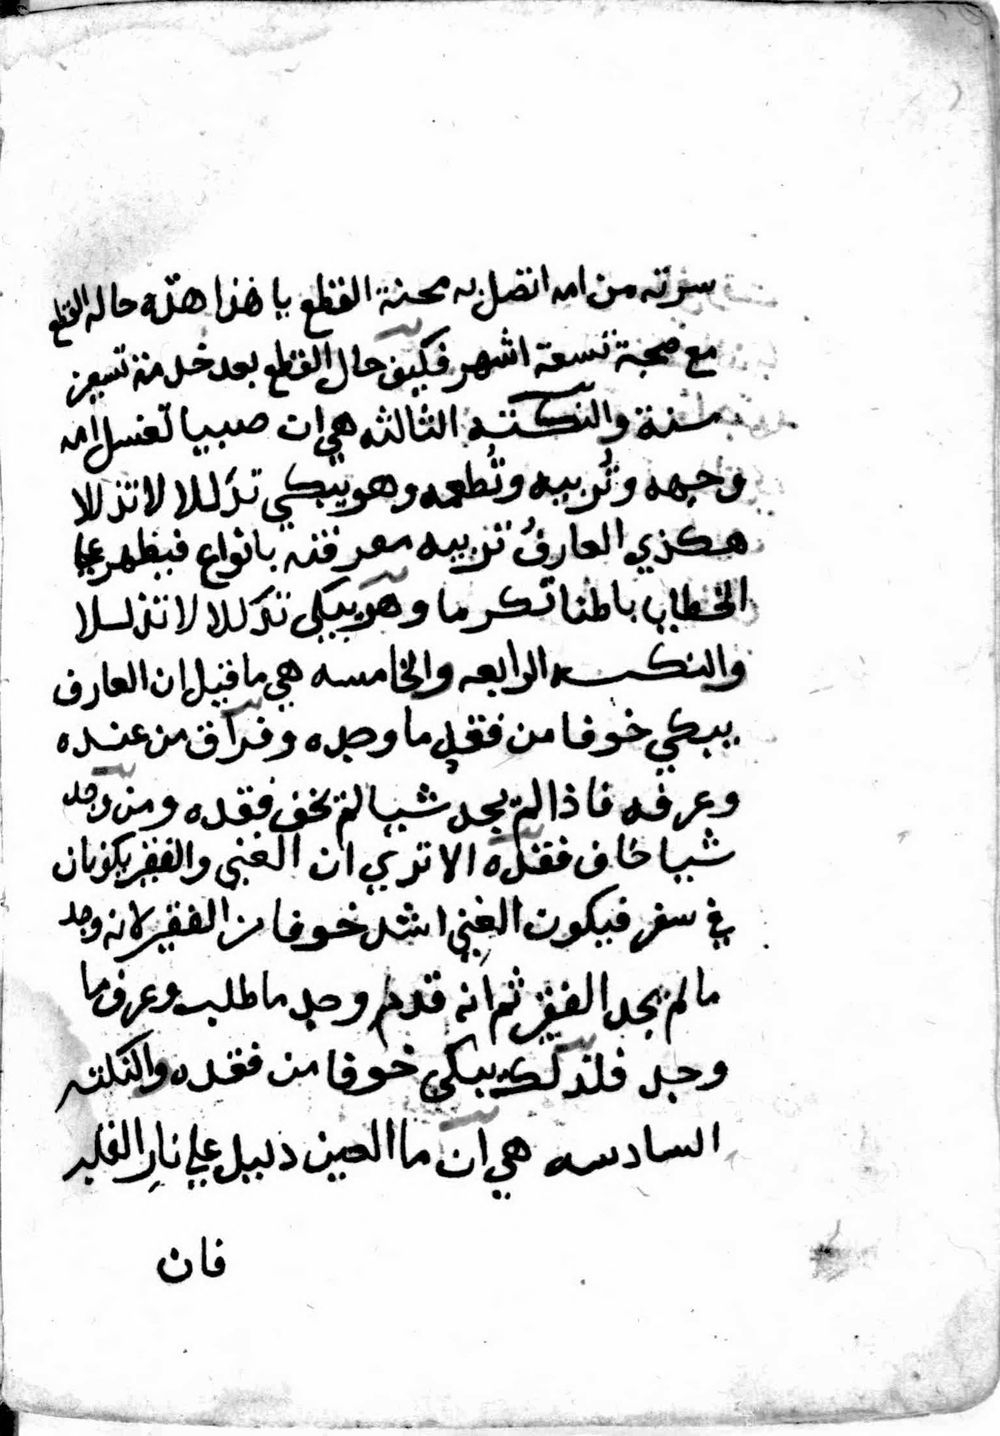 سرته من امه اتصل به محنة القطع يا هذا هذه حاله القطع
مع صحبة تسعة اشهر فكيف حال القطع بعد خدمة تسعين
سنة والنكتـه الثالثه هي ان صبيا تغسل امه
وجهه وتُربيه وتُطعمه وهو يبكي تدللا لا تذللا
هكذي العارفُ تربيه معرفته بانواع فيظهر علي
الخطاب باطنا تكرما وهو يبكي تدللا لا تذلـلا
والنكتـه الرابعه والخامسه هي ما قيل ان العارف
يبكي خوفا من فقد ما وجده وفراق من عنده
وعرفه فاذا لم يجد شيا لم يخف فقده ومن وجد
شيا خاف فقده الا تري ان الغني والفقير يكونان
في سفر فيكون الغني اشد خوفا من الفقير لانه وجد
ما لم يجد الفقير ثم انه قدم وجد ما طلب وعرف ما
وجد فلذلك يبكي خوفا من فقده والنكته
السادسه هي ان ما العين دليل علي نارِ القلب
فان